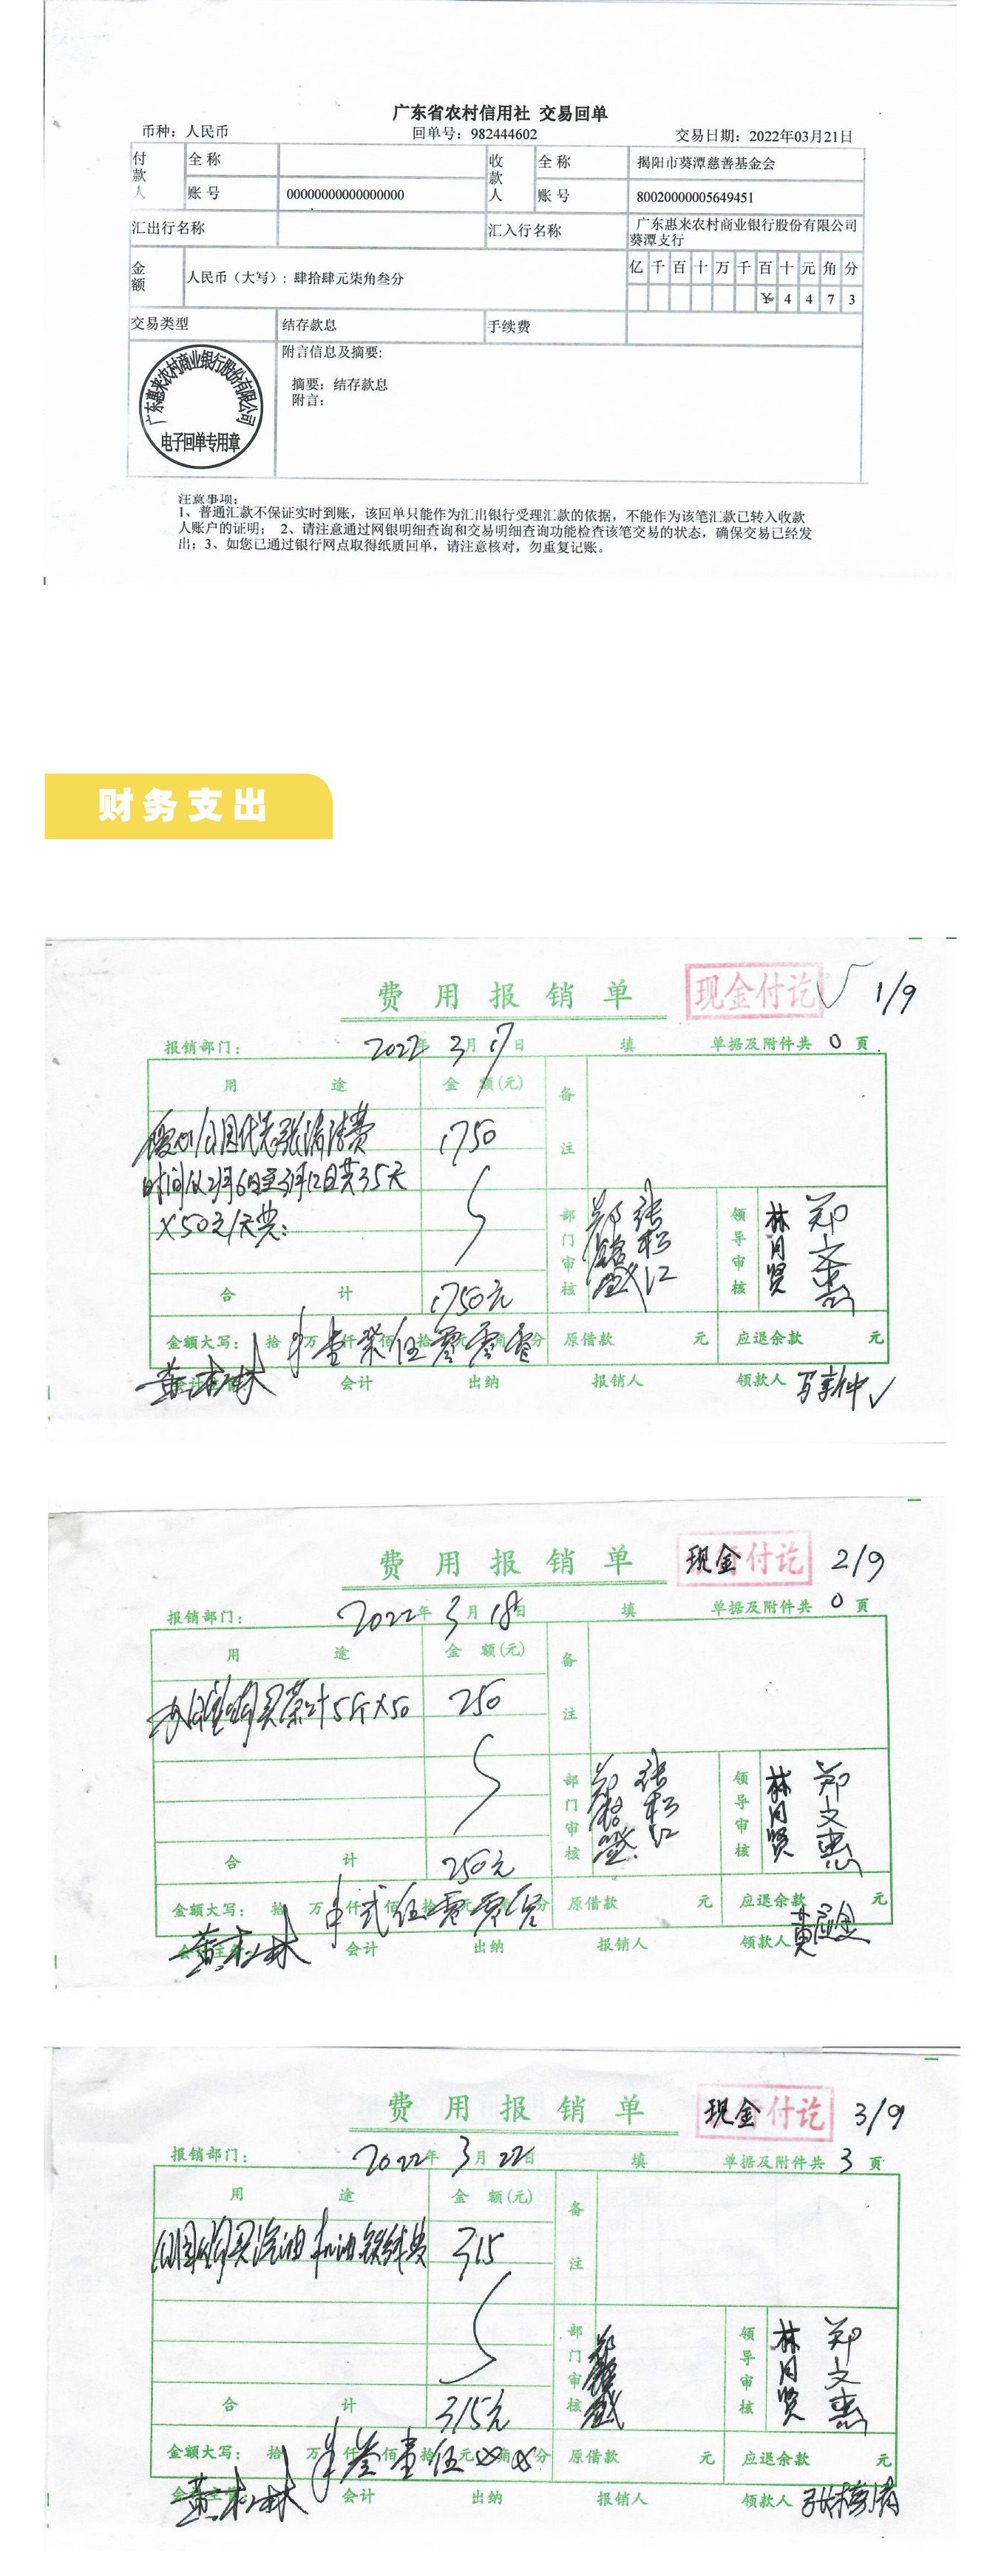 广东省农村信用社 交易回单
币种：人民币 回单号：982444602 交易日期：2022年03月21日
付款人 全称 收款人 全称 揭阳市葵潭慈善基金会
账号 00000000000000000 账号 80020000005649451
汇出行名称 汇入行名称 广东惠来农村商业银行股份有限公司
葵潭支行
金额 人民币（大写）：肆拾肆元柒角叁分 亿千百十万千百十元角分
¥4473
交易类型 结存款息 手续费
附言信息及摘要：
摘要：结存款息
附言：
广东惠来农村商业银行股份有限公司
电子回单专用章
注意事项：
1、普通汇款不保证实时到账，该回单只能作为汇出银行受理汇款的依据，不能作为该笔汇款已转入收款
人账户的证明； 2、请注意通过网银明细查询和交易明细查询功能检查该笔交易的状态，确保交易已经发
出；3、如您已通过银行网点取得纸质回单，请注意核对，勿重复记账。
财务支出
费用报销单 现金付讫 1/9
报销部门： 2022年3月17日 填 单据及附件共 0 页
用途 金额(元) 备注
清洁费 1750
时间从2月6日至3月12日共35天
×50元/天
部门审核 领导审核 林月贤 郑文惠
合计 1750元
金额大写： 拾 万 壹仟 柒佰 伍拾 零元 零角 零分 原借款 元 应退余款 元
会计 出纳 报销人 领款人
费用报销单 现金付讫 2/9
报销部门： 2022年3月18日 填 单据及附件共 0 页
用途 金额(元) 备注
办公室购买茶叶5斤×50 250
部门审核 张松江 领导审核 林月贤 郑文惠
合计 250元
金额大写： 拾 万 仟 佰 拾 元 角 分 原借款 元 应退余款 元
会计主管 会计 出纳 报销人 领款人
费用报销单 现金付讫 3/9
报销部门： 2022年3月22日 填 单据及附件共 3 页
用途 金额(元) 备注
公园购买汽油 机油 费 315
部门审核 领导审核 林月贤 郑文惠
合计 315元
金额大写： 拾 万 仟 叁佰 壹拾 伍元 角 分 原借款 元 应退余款 元
会计主管 会计 出纳 报销人 领款人